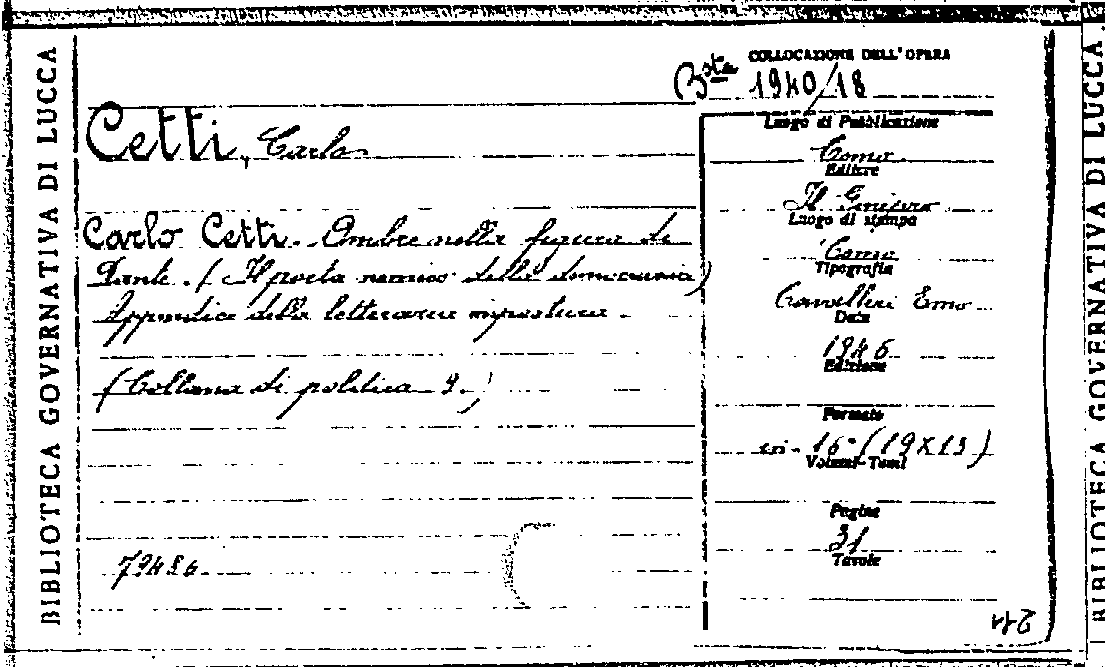 BIBLIOTECA GOVERNATIVA DI LUCCA
COLLOCAZIONE DELL'OPERA
Bsta 1940/18
Cetti, Carlo
Carlo Cetti. Ombre nella figura di
Dante. (Il poeta nemico della democrazia)
Appendice della letteraria impostura.
(Collana di politica 9.)
79486
Luogo di Pubblicazione
Como
Editore
Il
Luogo di stampa
Como
Tipografia
Cavalleri Emo
Data
1946
Edizione
Formato
in-16° (19X13)
Volumi-Tomi
Pagine
31
Tavole
211
BIBLIOTECA GOVERNATIVA DI LUCCA